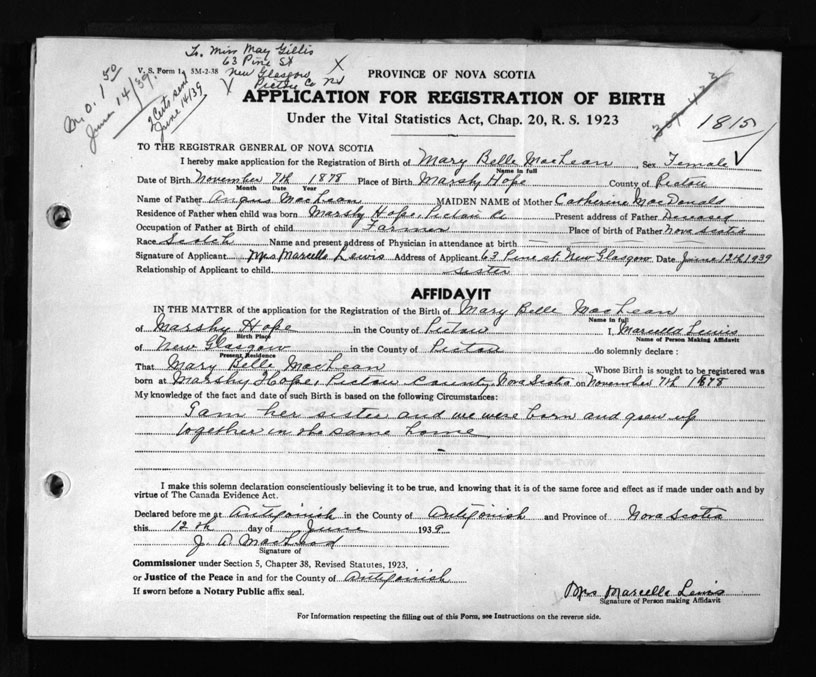 To Miss May Gillis
63 Pine St
New Glasgow
Pictou Co NS
X
M.O. 1.50
June 14/39
2 Certs sent
June 14/39
V. S. Form 1 5M-2-38
PROVINCE OF NOVA SCOTIA
APPLICATION FOR REGISTRATION OF BIRTH
Under the Vital Statistics Act, Chap. 20, R. S. 1923
1815
TO THE REGISTRAR GENERAL OF NOVA SCOTIA
I hereby make application for the Registration of Birth of Mary Belle MacLean Sex Female
Name in full
Date of Birth November 7th 1878 Place of Birth Marshy Hope County of Pictou
Month Date Year
Name of Father Angus MacLean MAIDEN NAME of Mother Catherine MacDonald
Residence of Father when child was born Marshy Hope, Pictou Co Present address of Father Deceased
Occupation of Father at Birth of child Farmer Place of birth of Father Nova Scotia
Race Scotch Name and present address of Physician in attendance at birth
Signature of Applicant Mrs Marcella Lewis Address of Applicant 63 Pine st. New Glasgow Date June 12th 1939
Relationship of Applicant to child sister
AFFIDAVIT
IN THE MATTER of the application for the Registration of the Birth of Mary Belle MacLean
Name in full
of Marshy Hope in the County of Pictou I, Marcella Lewis
Birth Place Name of Person Making Affidavit
of New Glasgow in the County of Pictou do solemnly declare :
Present Residence
That Mary Belle MacLean Whose Birth is sought to be registered was
born at Marshy Hope, Pictou County, Nova Scotia on November 7th 1878
My knowledge of the fact and date of such Birth is based on the following Circumstances:
I am her sister and we were born and grew up
together in the same home
I make this solemn declaration conscientiously believing it to be true, and knowing that it is of the same force and effect as if made under oath and by
virtue of The Canada Evidence Act.
Declared before me at Antigonish in the County of Antigonish and Province of Nova Scotia
this 12th day of June 1939
J. A. MacLeod
Signature of
Commissioner under Section 5, Chapter 38, Revised Statutes, 1923,
or Justice of the Peace in and for the County of Antigonish
If sworn before a Notary Public affix seal.
Mrs Marcella Lewis
Signature of Person making Affidavit
For Information respecting the filling out of this Form, see Instructions on the reverse side.